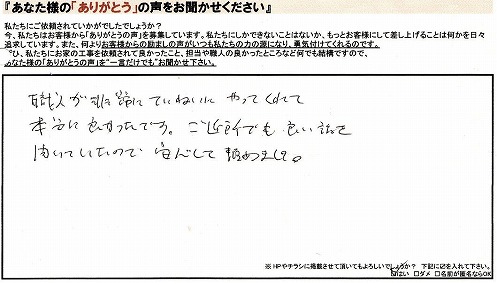 『あなた様の「ありがとう」の声をお聞かせください』
私たちにご依頼されていかがでしたでしょうか?
今、私たちはお客様から「ありがとうの声」を募集しています。私たちにしかできないことはないか、もっとお客様にして差し上げることは何かを日々
追求しています。また、何よりお客様からの励ましの声がいつも私たちの力の源になり、勇気付けてくれるのです。
ひ、私たちにお家の工事を依頼されて良かったこと、担当や職人の良かったところなど何でも結構ですので、
あなた様の「ありがとうの声」を"一言だけでも"お聞かせ下さい。
職人が非常にていねいに やってくれて
本当に良かったです。ご近所でも良い話を
聞いていたので 安心して 頼めました。
※HPやチラシに掲載させて頂いてもよろしいでしょうか? 下記に☑を入れて下さい。
☑はい □ダメ □名前が匿名ならOK